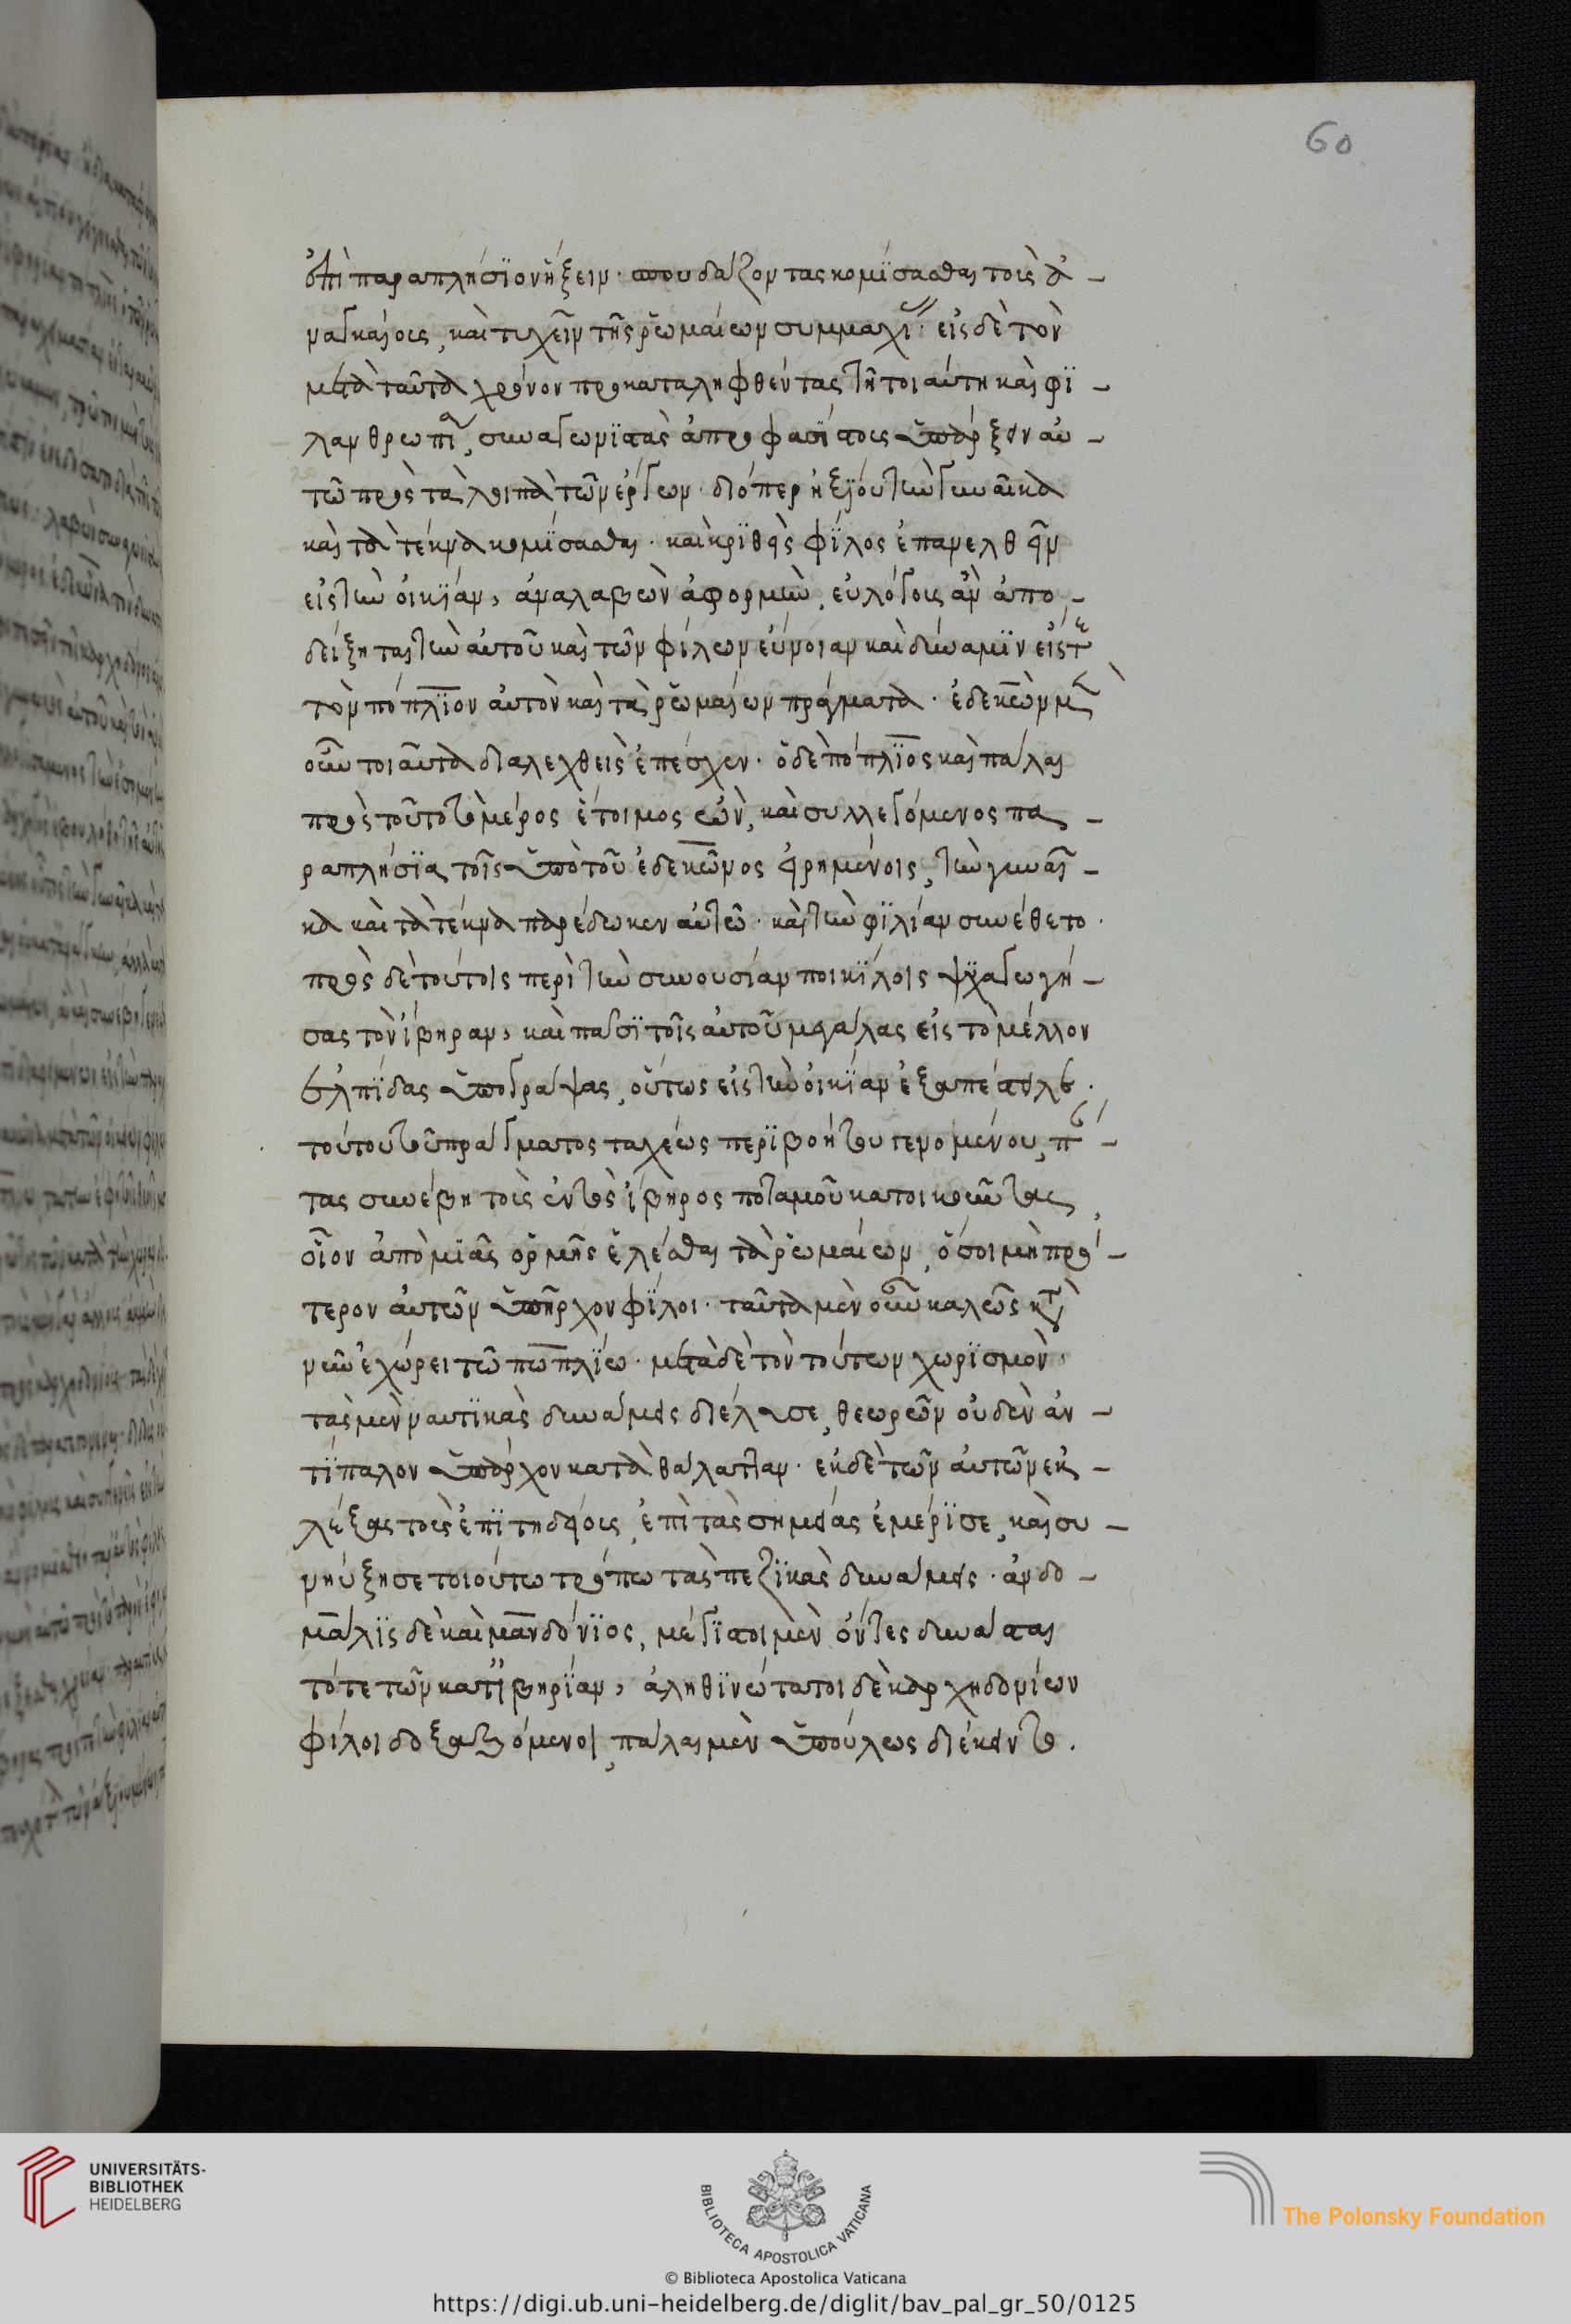 60
ἐπὶ παραπλήσιον ἥξειν· σπουδάζοντας κομίσασθαι τοὺς ἀ-
ναγκαίους, καὶ τυχεῖν τῆς ῥωμαίων συμμαχίας· εἰς δὲ τὸν
μετὰ ταῦτα χρόνον προκαταληφθέντας τῇ τοιαύτῃ καὶ φι-
λανθρωπίᾳ, συναγωνιστὰς ἀπροφασίστους ὑπάρξειν αὐ-
τῷ πρὸς τὰ λοιπὰ τῶν ἔργων· διόπερ ἠξίου τὴν γυναῖκα
καὶ τὰ τέκνα κομίσασθαι· καὶ κριθεὶς φίλος ἐπανελθεῖν
εἰς τὴν οἰκίαν, ἀναλαβὼν ἀφορμὴν, εὐλόγους ἂν ἀπο-
δείξηται τὴν αὐτοῦ καὶ τῶν φίλων εὔνοιαν καὶ δύναμιν εἴς τε
τὸν πόπλιον αὐτὸν καὶ τὰ ῥωμαίων πράγματα· ἐδεκὼν μὲν
οὖν τοιαῦτα διαλεχθεὶς ἐπέσχεν· ὁ δὲ πόπλιος καὶ πάλαι
πρὸς τοῦτο τὸ μέρος ἕτοιμος ὢν, καὶ συλλεγόμενος πα-
ραπλήσια τοῖς ὑπὸ τοῦ ἐδεκῶνος εἰρημένοις, τὴν γυναῖ-
κα καὶ τὰ τέκνα παρέδωκεν αὐτῷ· καὶ τὴν φιλίαν συνέθετο·
πρὸς δὲ τούτοις περὶ τὴν συνουσίαν ποικίλοις ψυχαγωγή-
σας τὸν ἴβηραν, καὶ πᾶσι τοῖς αὐτοῦ μεγάλας εἰς τὸ μέλλον
ἐλπίδας ὑπογράψας, οὕτως εἰς τὴν οἰκίαν ἐξαπέστειλε·
τούτου τοῦ πράγματος ταχέως περιβοήτου γενομένου, πάν-
τας συνέβη τοὺς ἐντὸς ἴβηρος ποταμοῦ κατοικοῦντας
οἷον ἀπὸ μιᾶς ὁρμῆς ἑλέσθαι τὰ ῥωμαίων, ὅσοι μὴ πρό-
τερον αὐτῶν ὑπῆρχον φίλοι· ταῦτα μὲν οὖν καλῶς κατὰ
νοῦν ἐχώρει τῷ ποπλίῳ· μετὰ δὲ τὸν τούτων χωρισμὸν·
τὰς μὲν ναυτικὰς δυνάμεις διέλυσε, θεωρῶν οὐδὲν ἀν-
τίπαλον ὑπάρχον κατὰ θάλατταν· ἐκ δὲ τῶν αὐτῶν ἐκ-
λέξας τοὺς ἐπιτηδείους, ἐπὶ τὰς σημείας ἐμέρισε, καὶ συ-
νηύξησε τοιούτῳ τρόπῳ τὰς πεζικὰς δυνάμεις· ἀνδο-
βάλις δὲ καὶ μανδόνιος, μέγιστοι μὲν ὄντες δυνάσται
τότε τῶν κατ' ἰβηρίαν, ἀληθινώτατοι δὲ καρχηδονίων
φίλοι δοξαζόμενοι, πάλαι μὲν ὑπούλως διέκειντο.
UNIVERSITÄTS-
BIBLIOTHEK
HEIDELBERG
BIBLIOTECA APOSTOLICA VATICANA
The Polonsky Foundation
© Biblioteca Apostolica Vaticana
https://digi.ub.uni-heidelberg.de/diglit/bav_pal_gr_50/0125